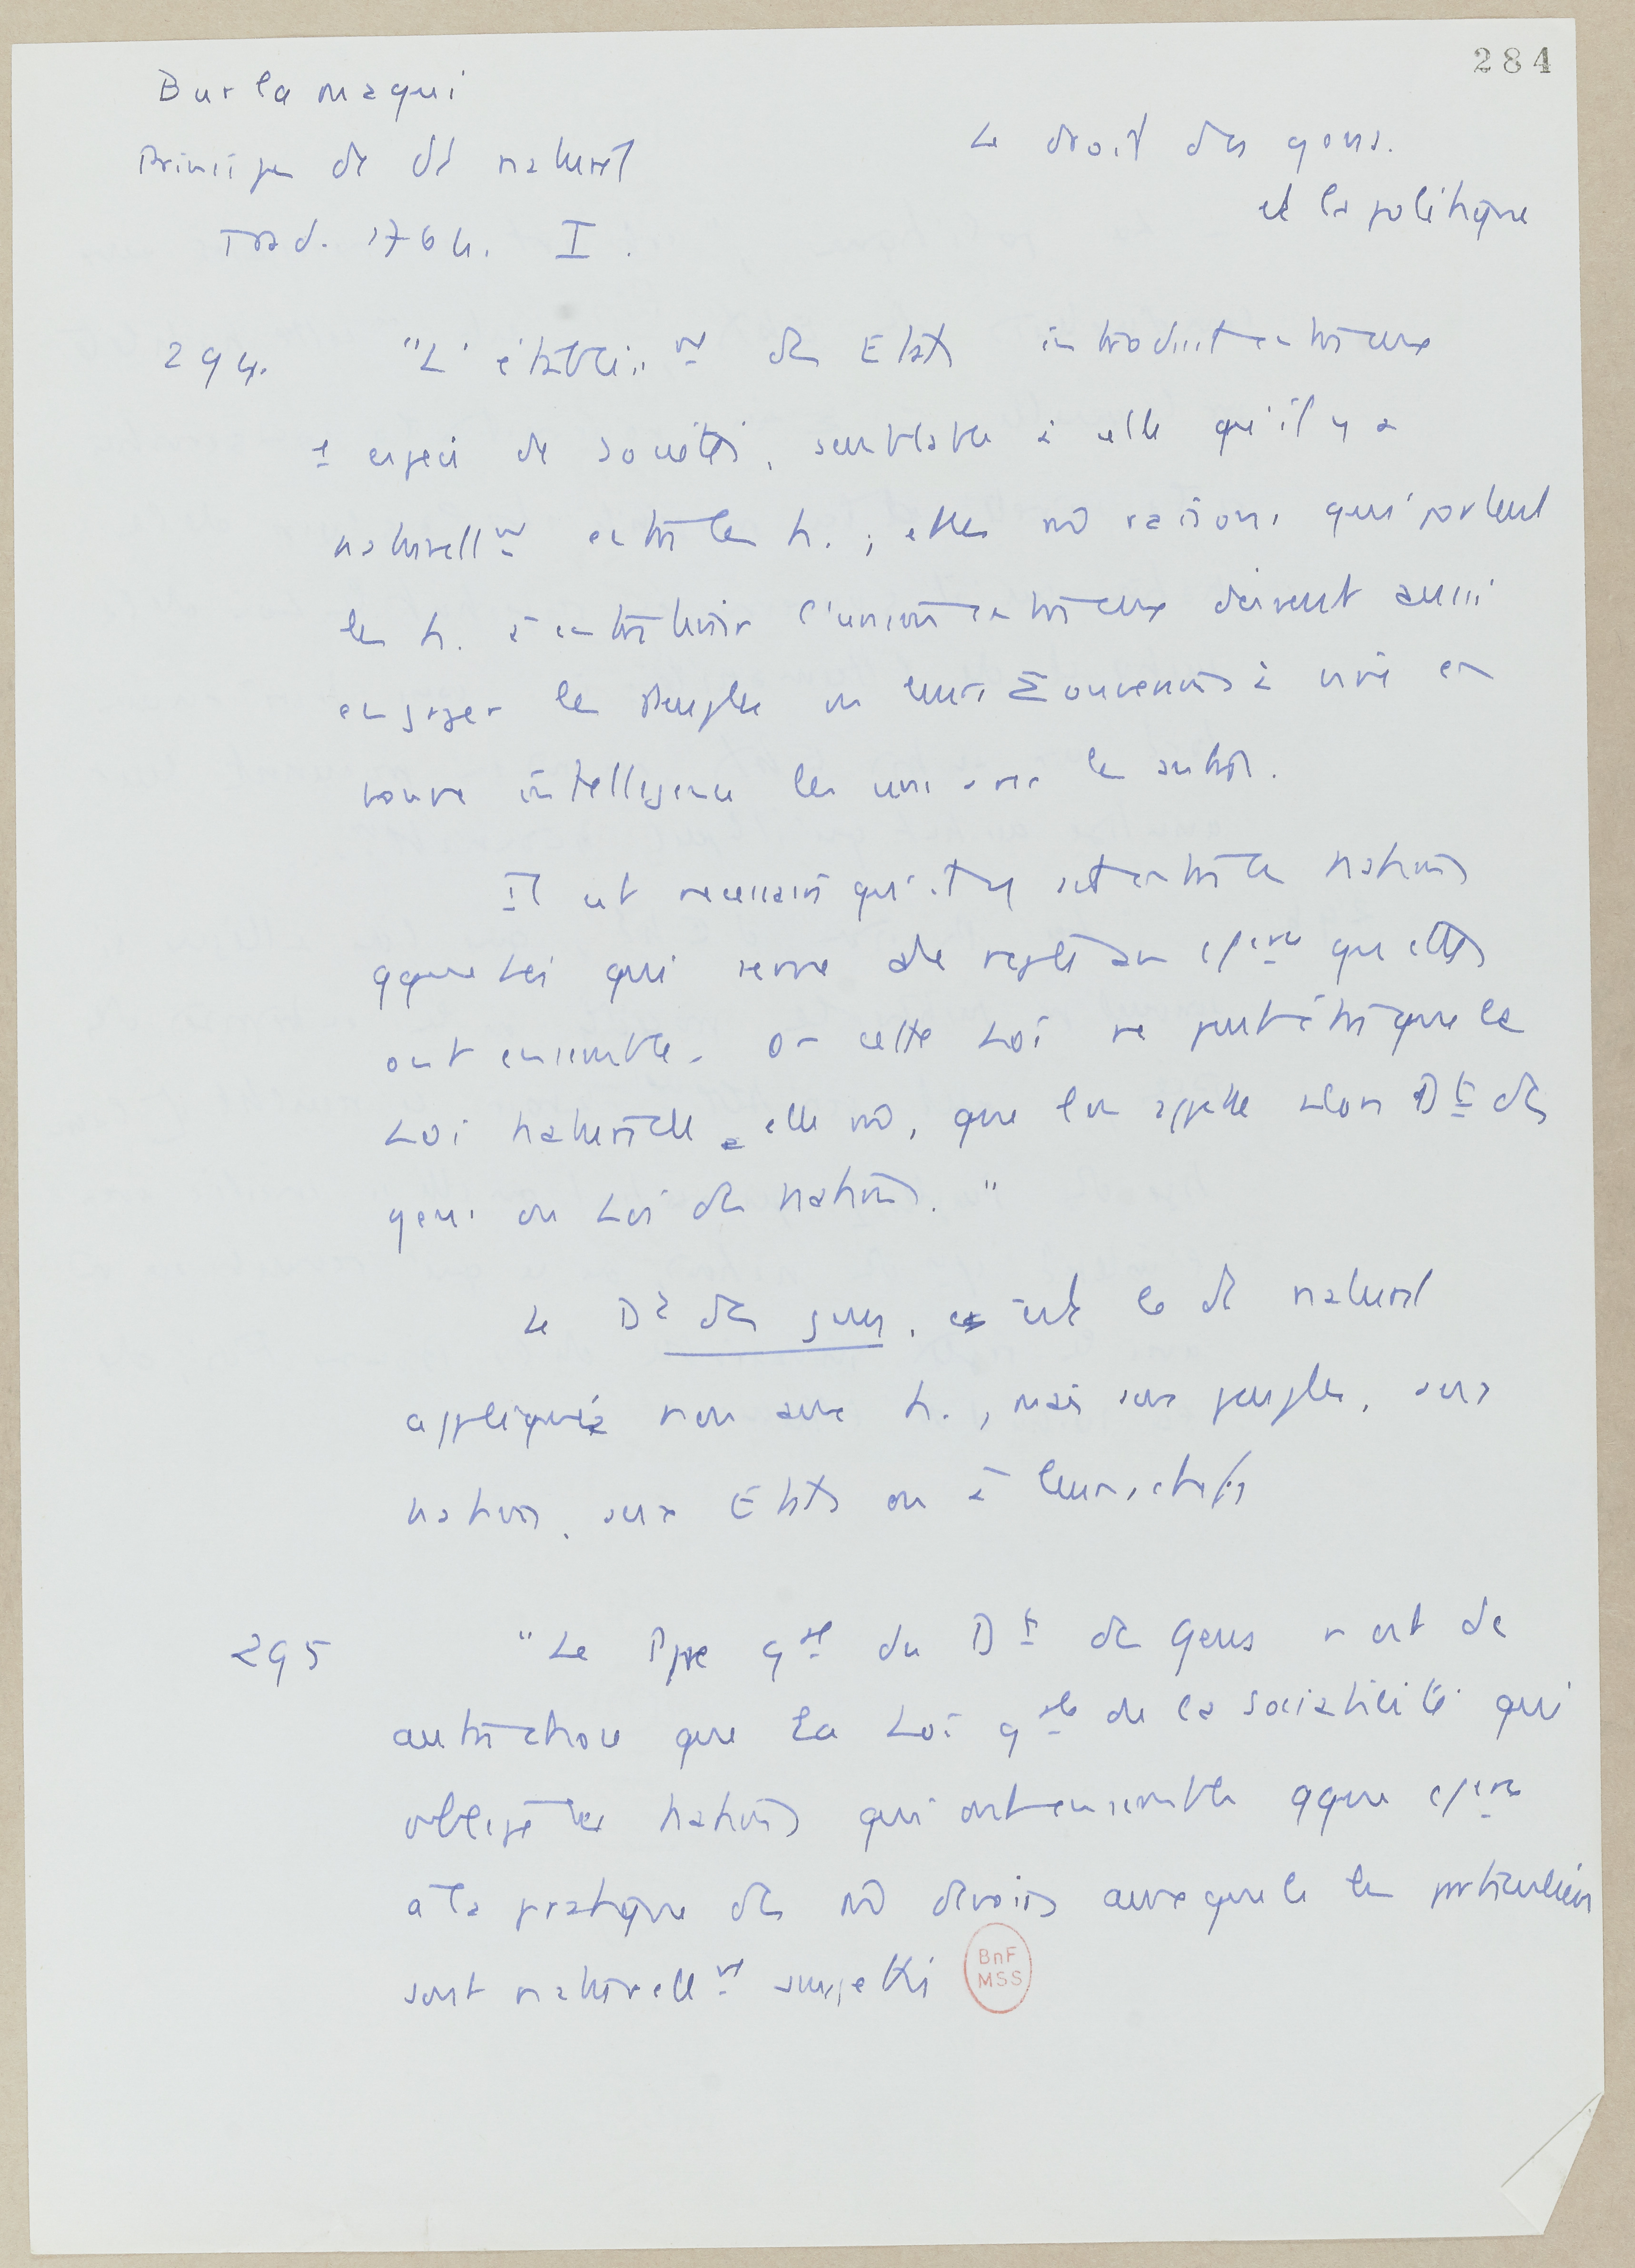 284
Burlamaqui
Principes de dt naturel
Trad. 1764. I.
Le droit des gens.
et la politique
294. "L'établissmt des Etats introduit entre eux
1 espèce de société, semblable à celle qu'il y a
naturellmt entre les h. ; et les raisons qui portent
les h. à entretenir l'union entre eux doivent aussi
engager les Peuples ou leurs Souverains à vivre en
bonne intelligence les uns avec les autres.
Il est nécessaire qu'il y ait entre les nations
qque Loi qui serve de règle au qu'elles
ont ensemble. Or cette Loi ne peut être que la
Loi naturelle elle mê, que l'on appelle alors Dt des
gens ou Loi des nations."
Le Dt des gens, c'est le dt naturel
appliqué non aux h., mais aux peuples, aux
nations, aux Etats ou à leurs chefs
295 "Le Ppe gal du Dt des Gens n'est de
autre chose que la Loi gale de la sociabilité qui
oblige les nations qui ont ensemble qque
à la pratique des mê devoirs auxquels les particuliers
sont naturellmt assujettis
BnF
MSS